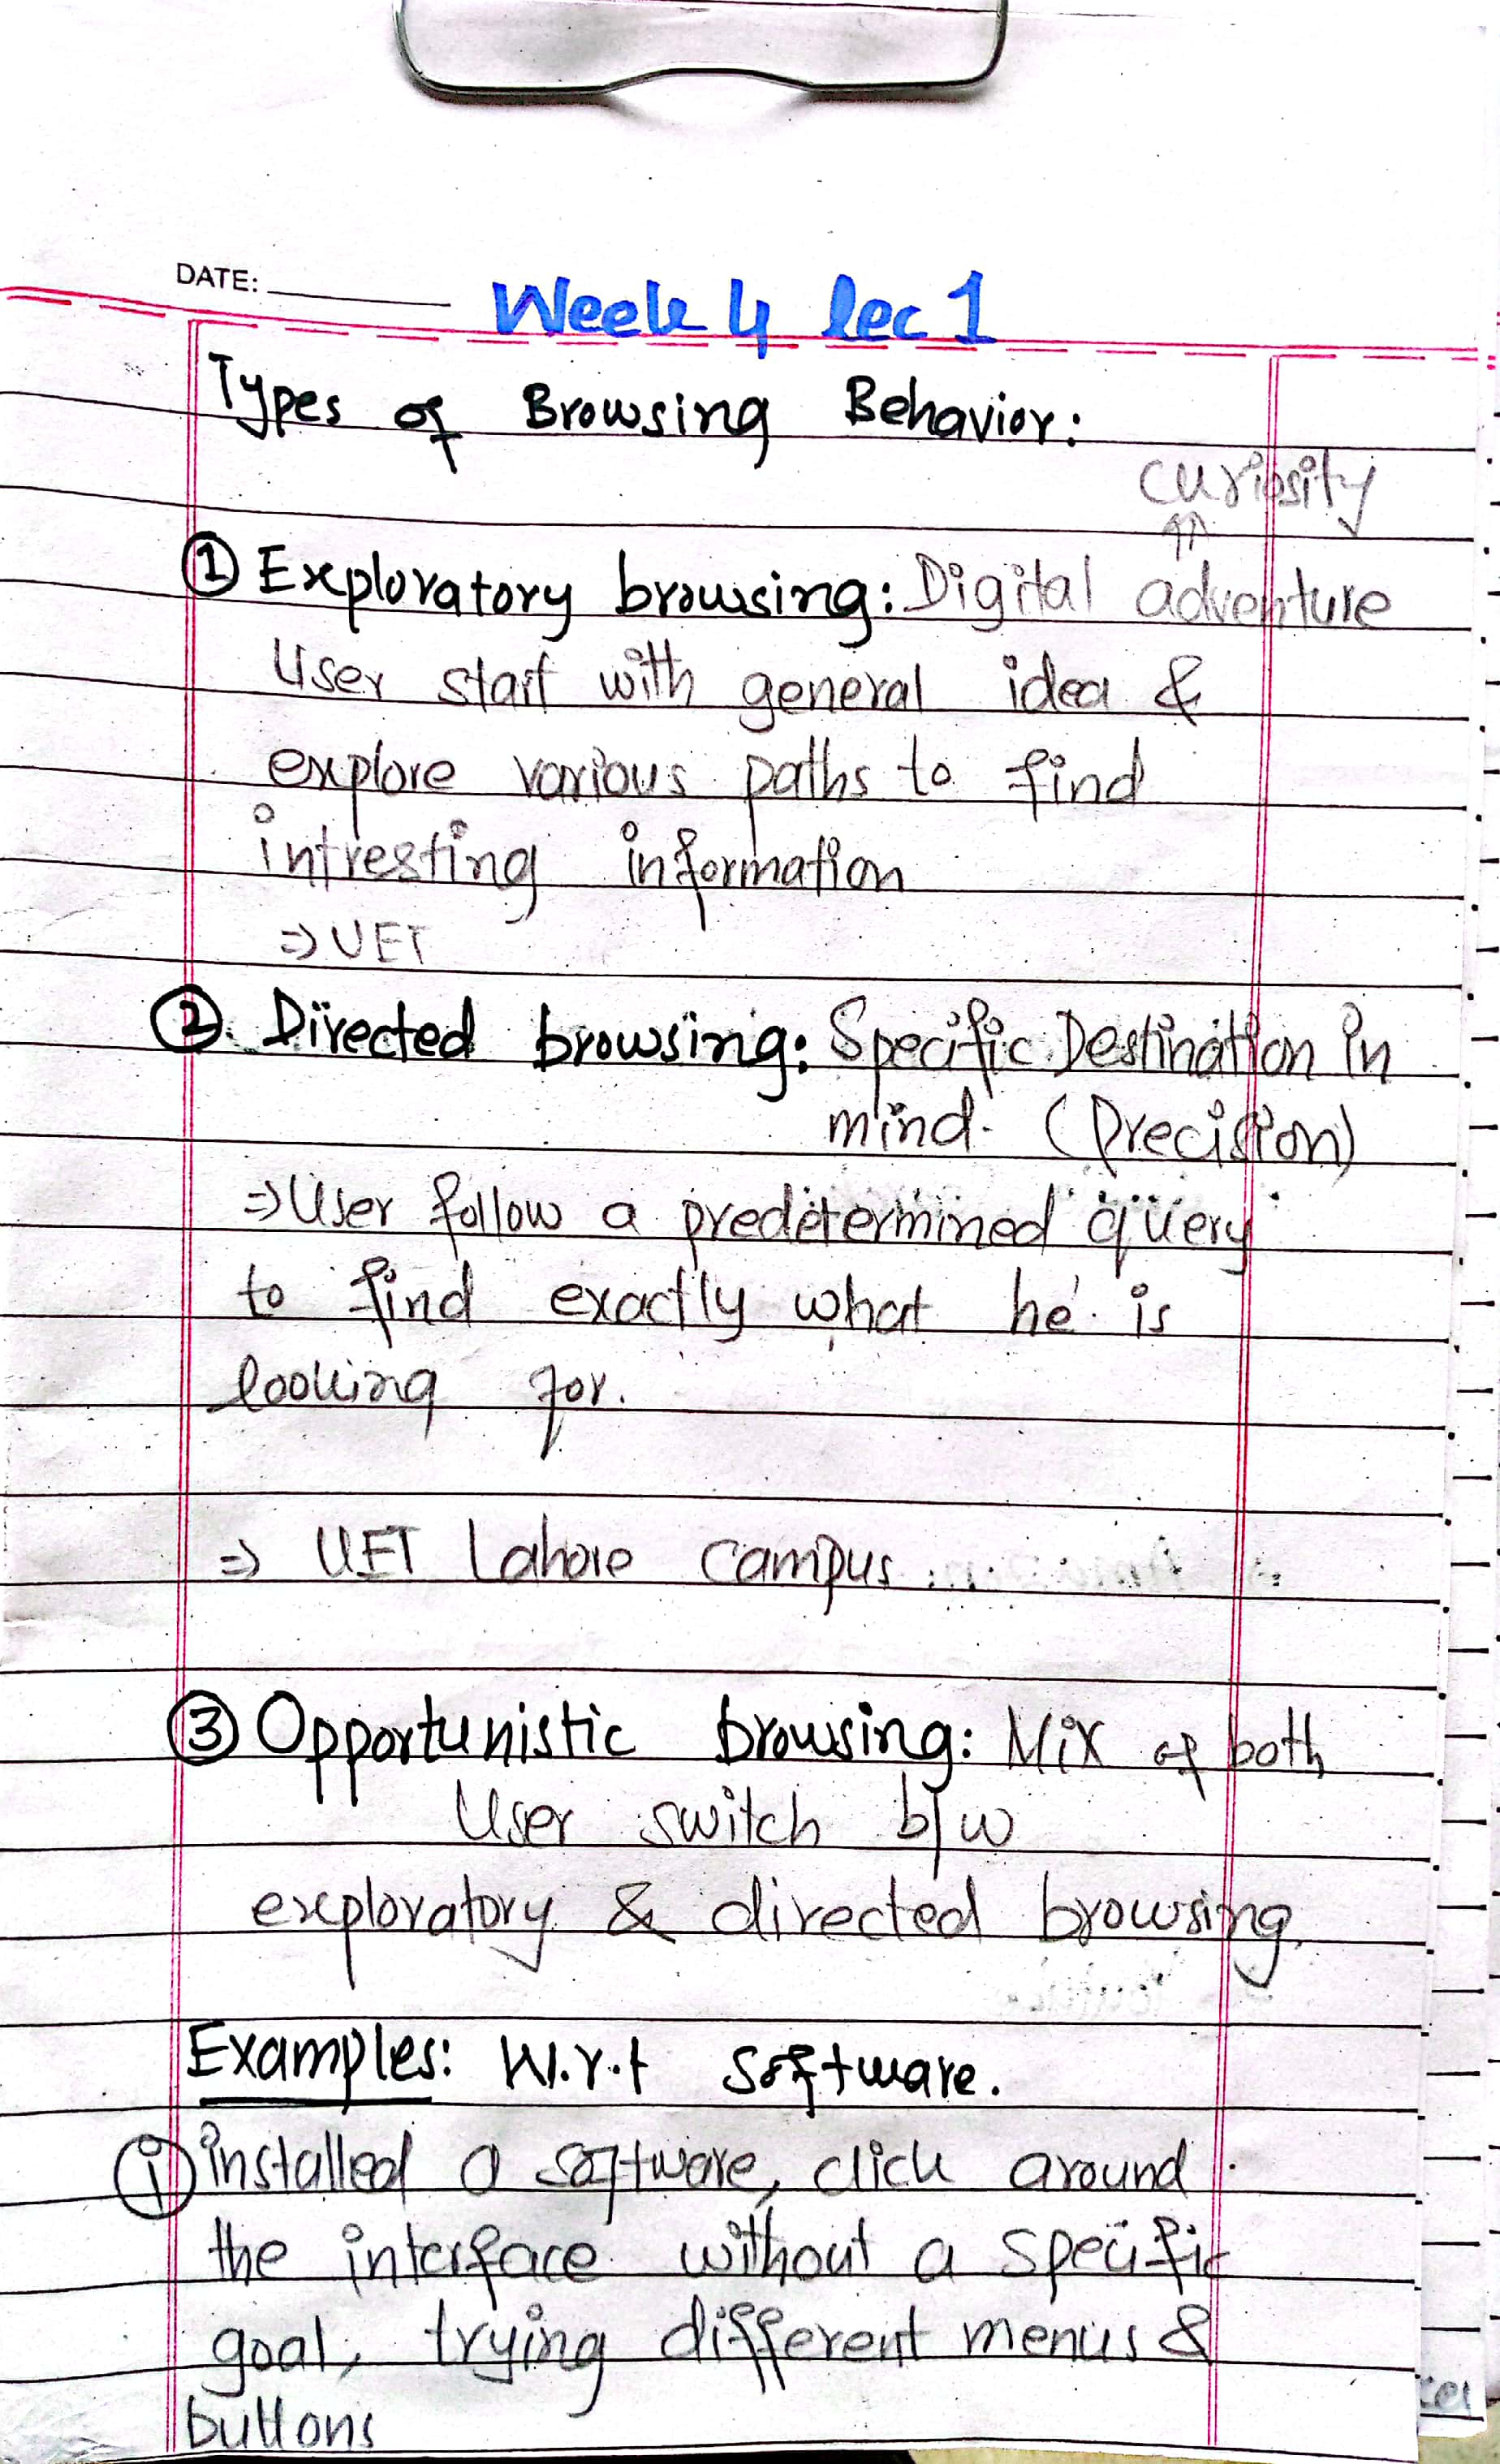 DATE:
Week 4 lec 1
Types of Browsing Behavior:
curiosity
① Exploratory browsing: Digital adventure
User start with general idea &
explore various paths to find
intresting information
⇒ UET
② Directed browsing: Specific Destination in
mind. (Precision)
⇒ User follow a predetermined query
to find exactly what he is
looking for.
⇒ UET Lahore campus
③ Opportunistic browsing: Mix of both
User switch b/w
exploratory & directed browsing.
Examples: W.r.t software.
ⓘ installed a software, click around
the interface without a specific
goal, trying different menus &
buttons